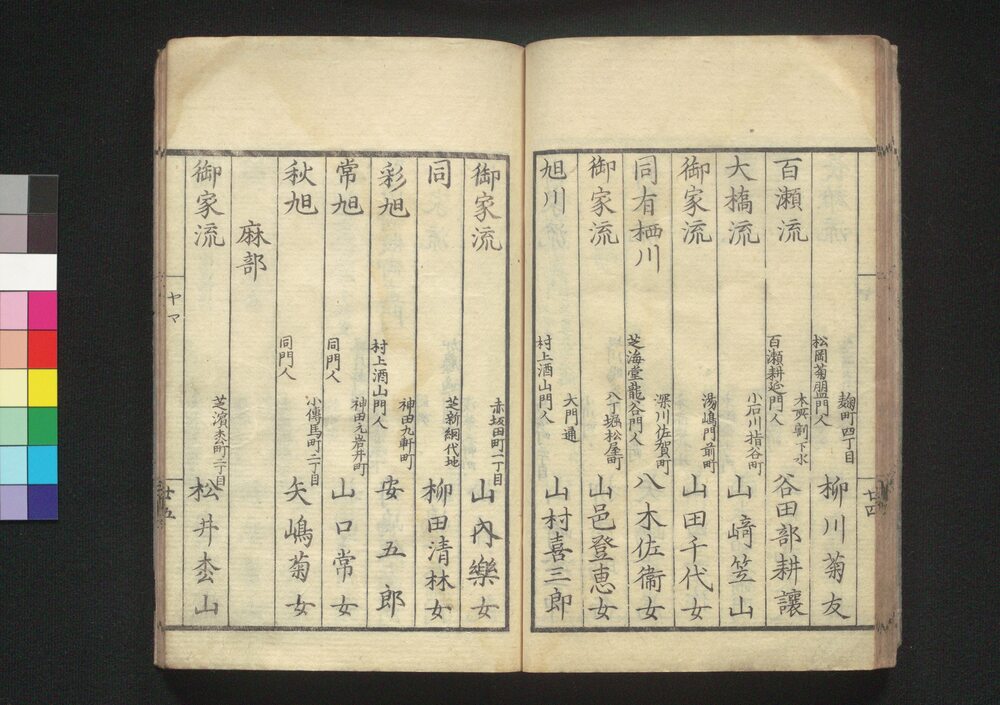 麹町四丁目
松岡菊盟門人
柳川菊友
百瀬流
本所割下水
百瀬耕延門人
谷田部耕譲
大橋流
小石川指谷町
山﨑笠山
御家流
湯嶋門前町
山田千代女
同有栖川
深川佐賀町
芝海堂龍谷門人
八木佐衞女
御家流
八丁堀松屋町
山邑登恵女
旭川
大門通
村上酒山門人
山村喜三郎
廿四
御家流
赤坂田町一丁目
山内樂女
同
芝新網代地
柳田清林女
彩旭
神田九軒町
村上酒山門人
安五郎
常旭
神田元岩井町
同門人
山口常女
秋旭
小傳馬町二丁目
同門人
矢嶋菊女
麻部
御家流
芝濱松町二丁目
松井枩山
ヤマ
廿五